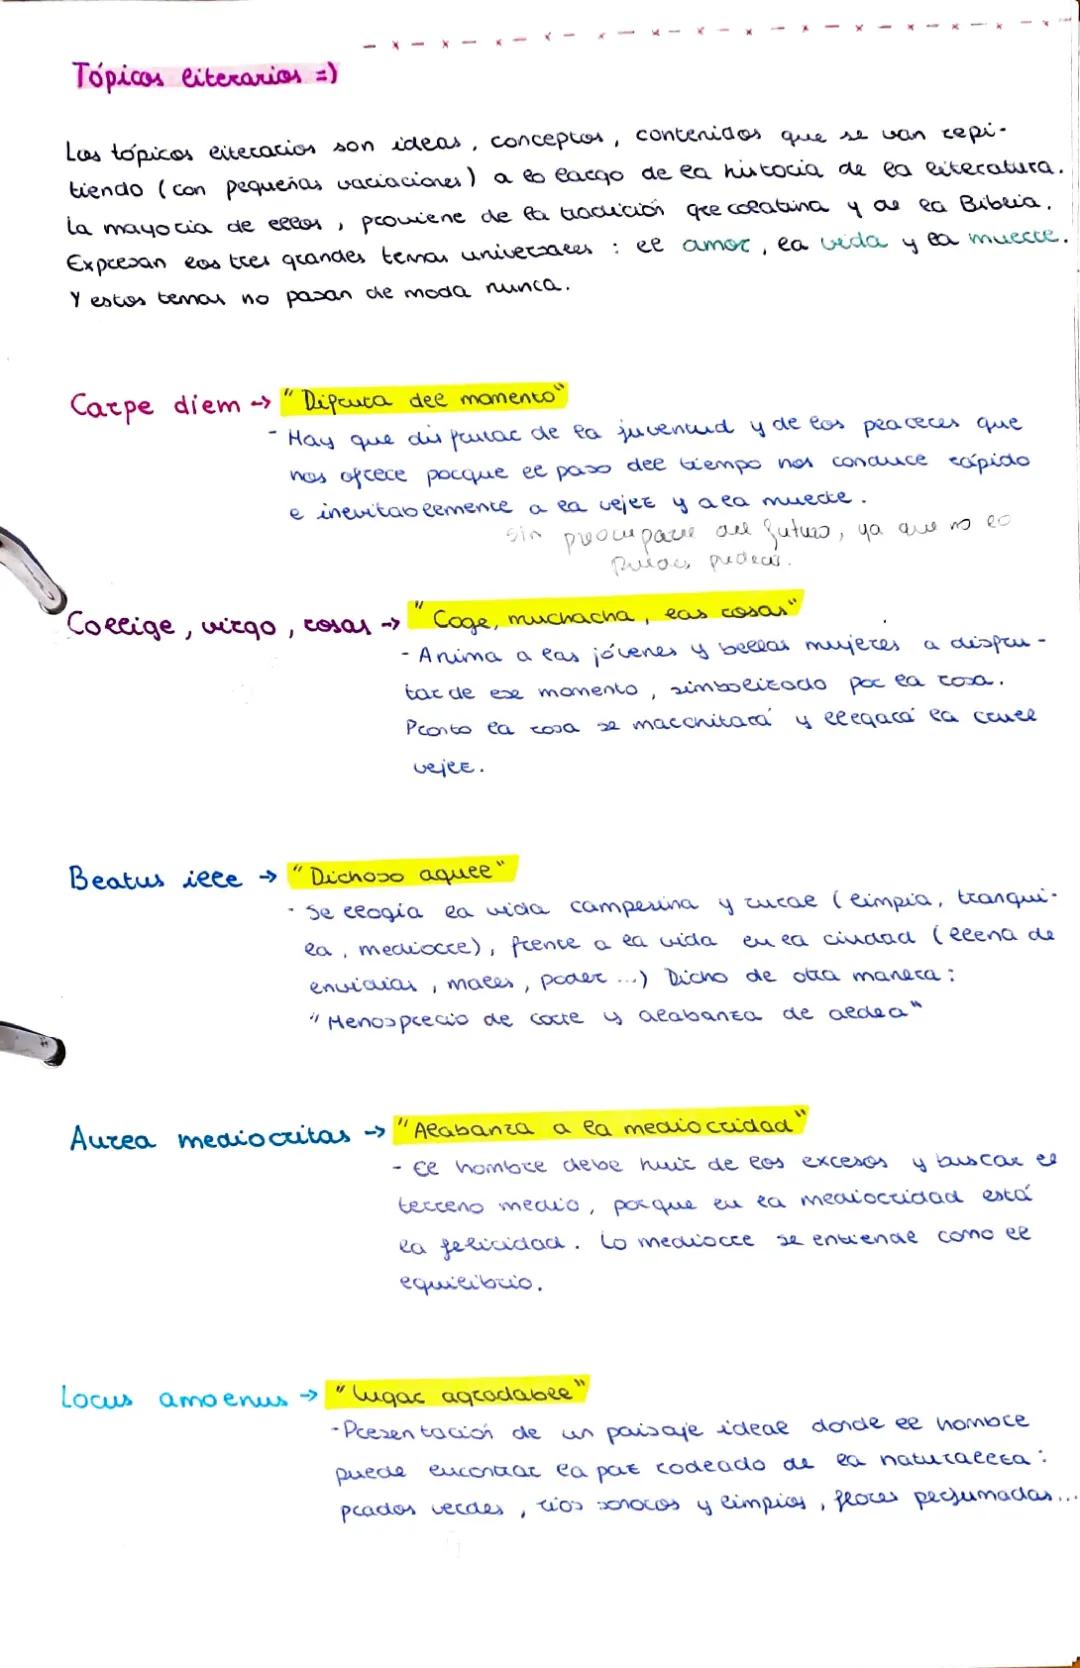 Tópicos literarios =)
Los tópicos literarios son ideas, conceptos, contenidos que se van repi-
tiendo (con pequeñas variaciones) a lo largo de la historia de la literatura.
La mayoria de ellos, proviene de la tradición grecolatina y de la Biblia.
Expresan los tres grandes temas universales: el amor, la vida y la muerte.
Y estos temas no pasan de moda nunca.
Carpe diem → "Disfruta del momento"
- Hay que disfrutar de la juventud y de los placeres que
nos ofrece porque el paso del tiempo nos conduce rápido
e inevitablemente a la vejez y a la muerte.
sin preocuparse del futuro, ya que no lo
puedes predecir.
Collige, virgo, rosas → "Coge, muchacha, las rosas"
- Anima a las jóvenes y bellas mujeres a disfru-
tar de ese momento, simbolizado por la rosa.
Pronto la rosa se marchitará y llegará la cruel
vejez.
Beatus ille → "Dichoso aquel"
- Se elogia la vida campesina y rural (limpia, tranqui-
la, mediocre), frente a la vida en la ciudad (llena de
envidias, males, poder...) Dicho de otra manera:
"Menosprecio de corte y alabanza de aldea"
Aurea mediocritas → "Alabanza a la mediocridad"
- El hombre debe huir de los excesos y buscar el
terreno medio, porque en la mediocridad está
la felicidad. Lo mediocre se entiende como el
equilibrio.
Locus amoenus → "lugar agradable"
- Presentación de un paisaje ideal donde el hombre
puede encontrar la paz rodeado de la naturaleza:
prados verdes, ríos sonoros y limpios, flores perfumadas...